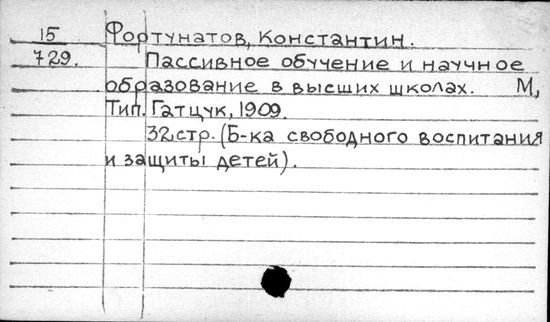 15 Фортунатов, Константин.
729. Пассивное обучение и научное
образование в высших школах. М,
Тип. Гатцук, 1909.
32 стр. (Б-ка свободного воспитания
и защиты детей).